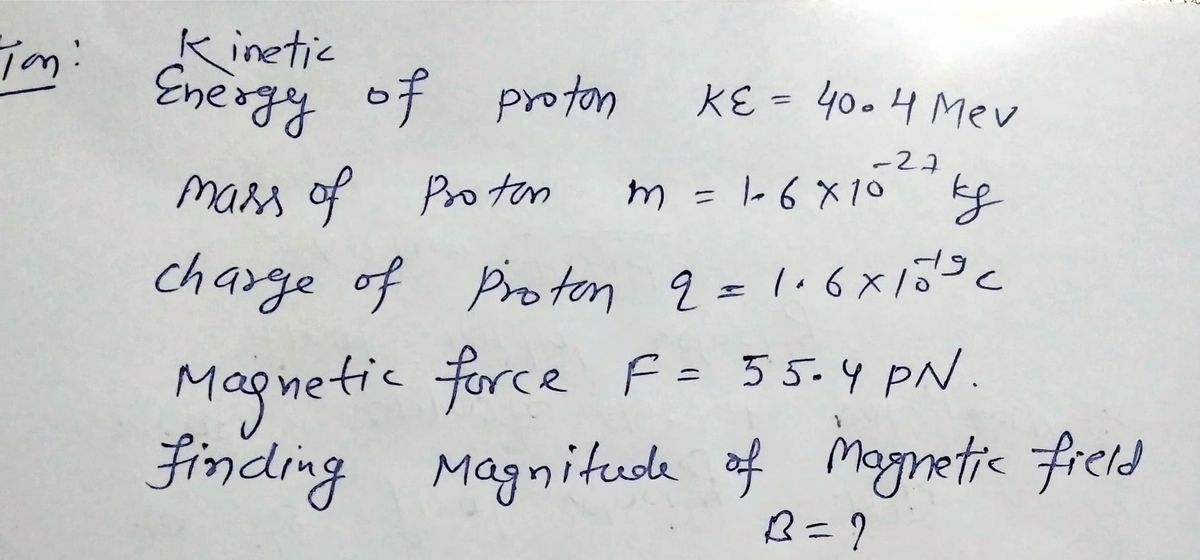 Kinetic
Energy of proton KE = 40.4 Mev
mass of Proton m = 1.6 × 10⁻²⁷ kg
charge of Proton q = 1.6 × 10⁻¹⁹ c
Magnetic force F = 55.4 PN.
finding Magnitude of Magnetic field
B = ?